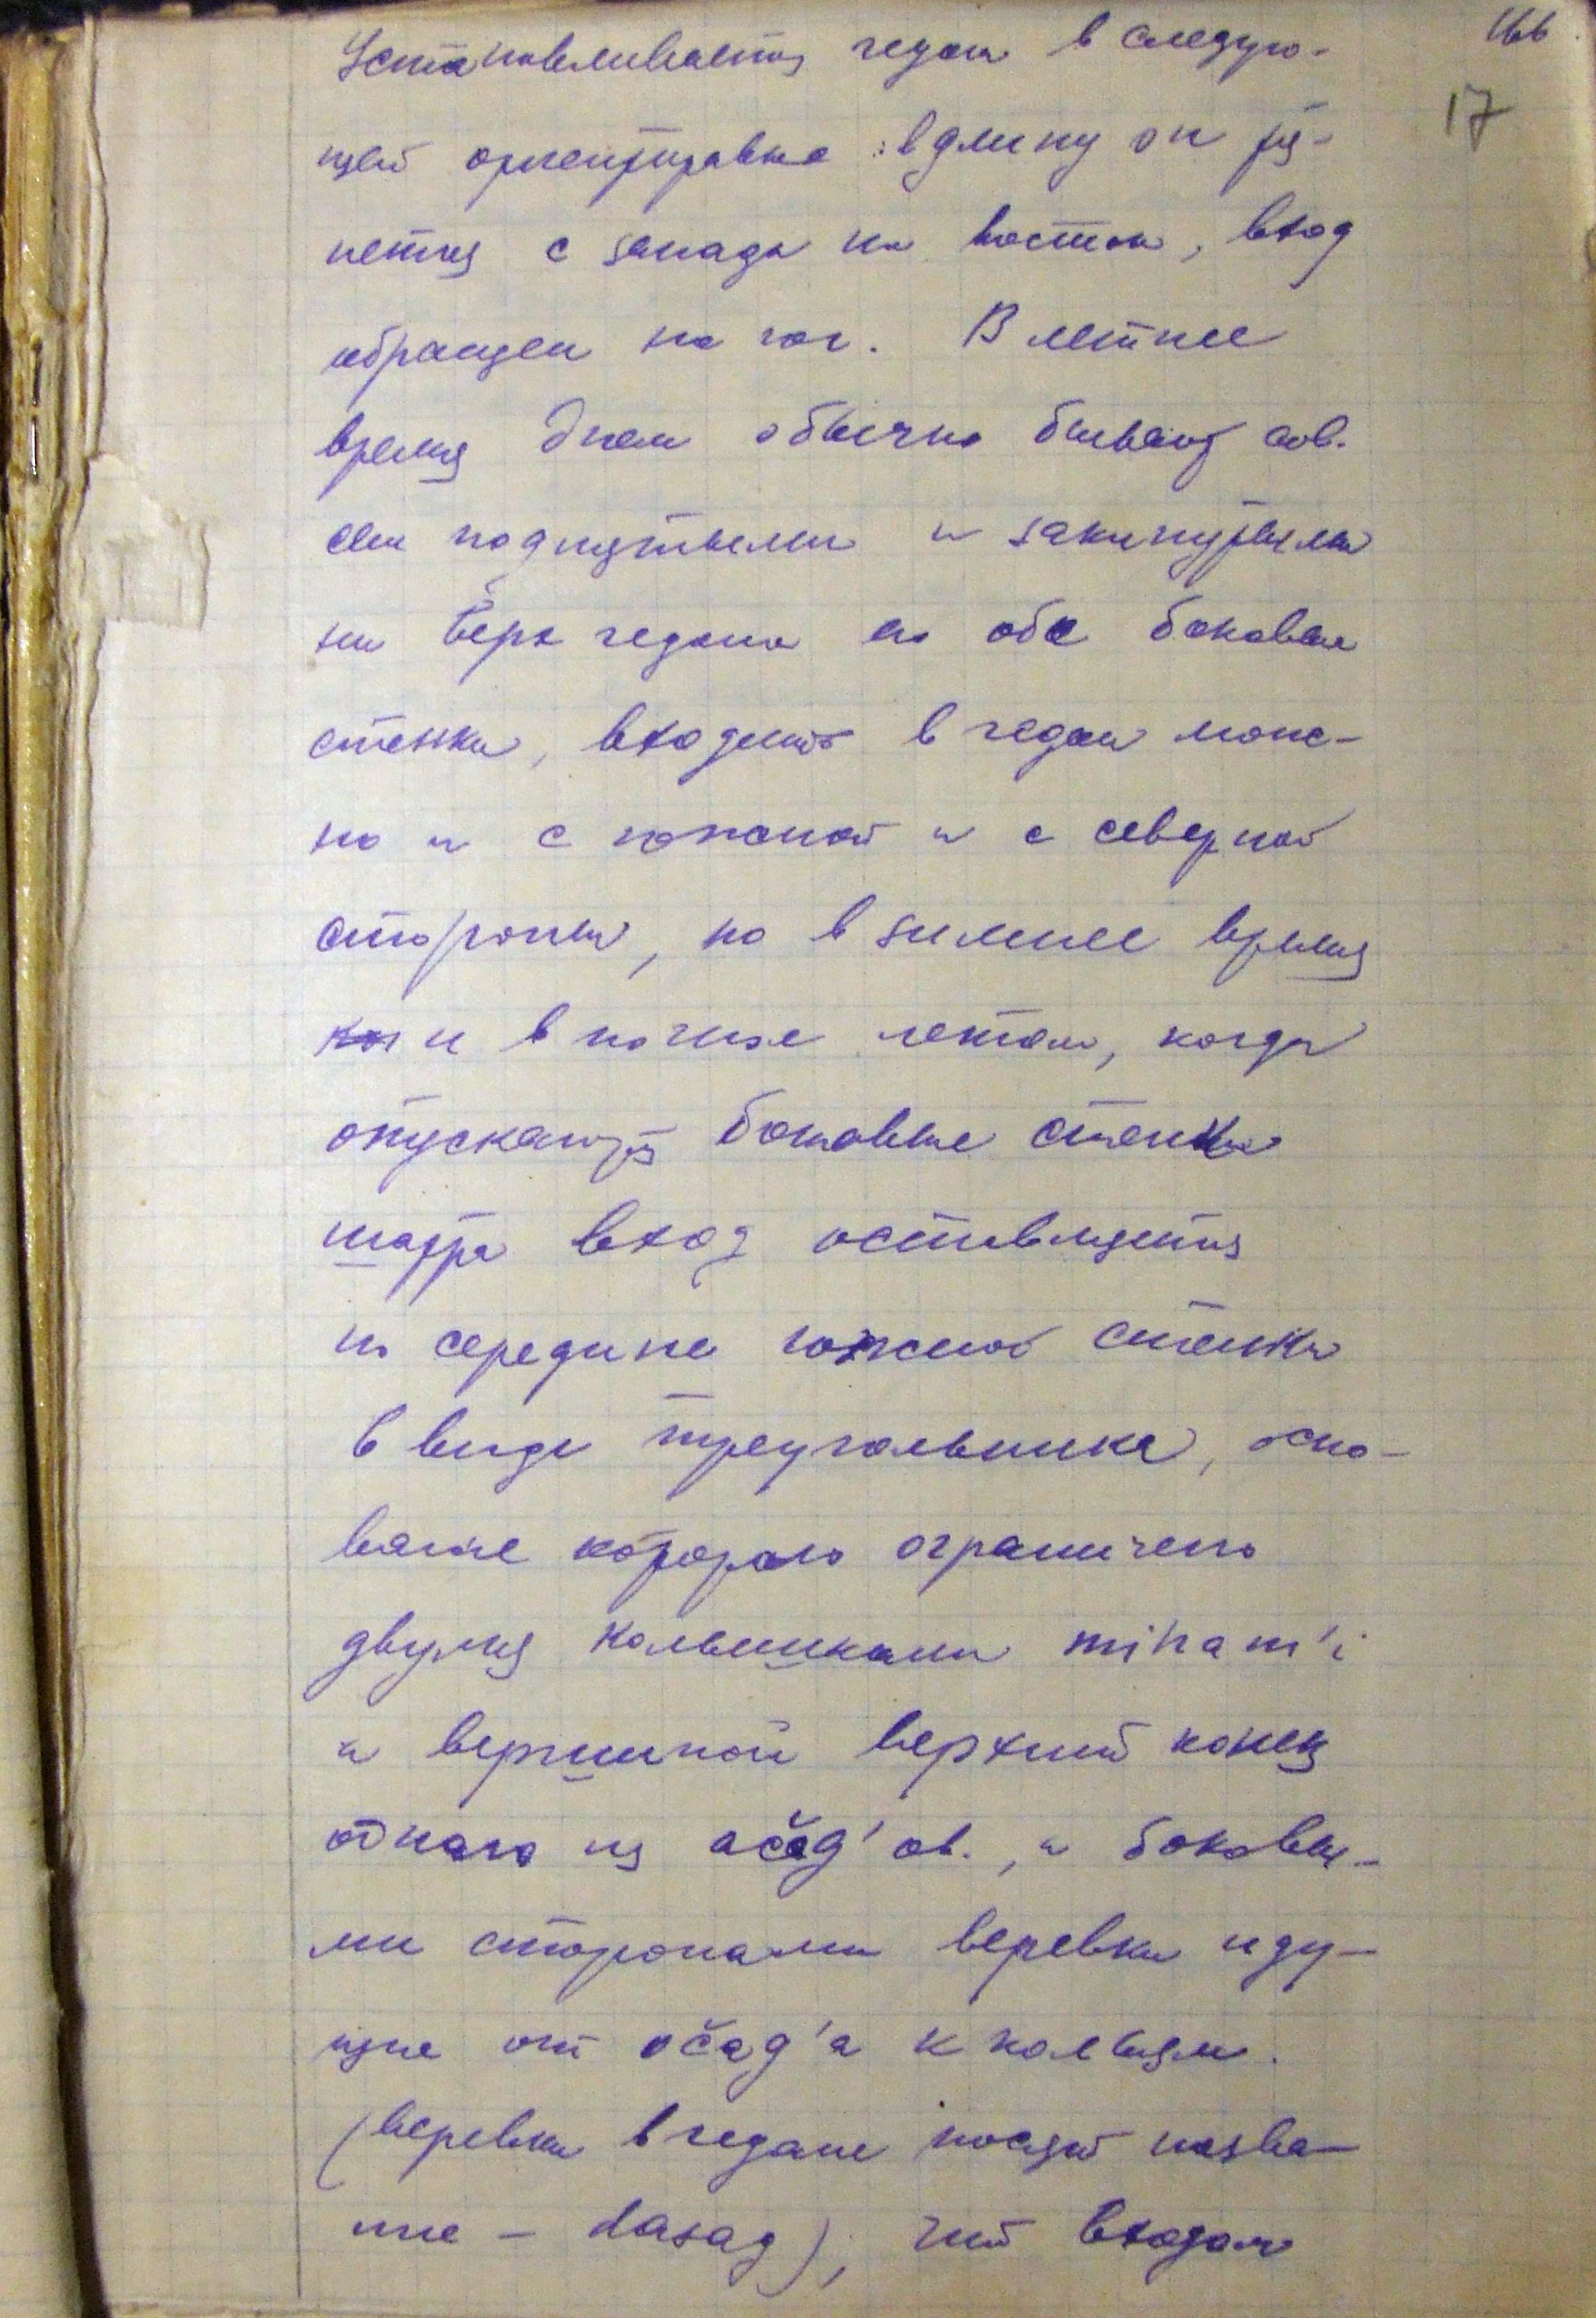 166
17
Устанавливается гедан в следую-
щей ориентировке: в длину он тя-
нется с запада на восток, вход
обращен на юг. В летнее
время днем обычно бывают сов.
сем поднятыми и закинутыми
на верх гедана по обе боковые
стенки, входить в гедан мож-
но и с южной и с северной
стороны, но в зимнее время
и в ночное летом, когда
опускаются боковые стенки
шатра вход оставляется
по середине южной стенки
в виде треугольника, осно-
вание которого ограничено
двумя колышками miham'i
и вершиной верхний конец
одного из očag'ов., а боковы-
ми сторонами веревки иду-
щие от očag'а к кольям.
(веревки в гедане носят назва-
ние – dasag), над входом